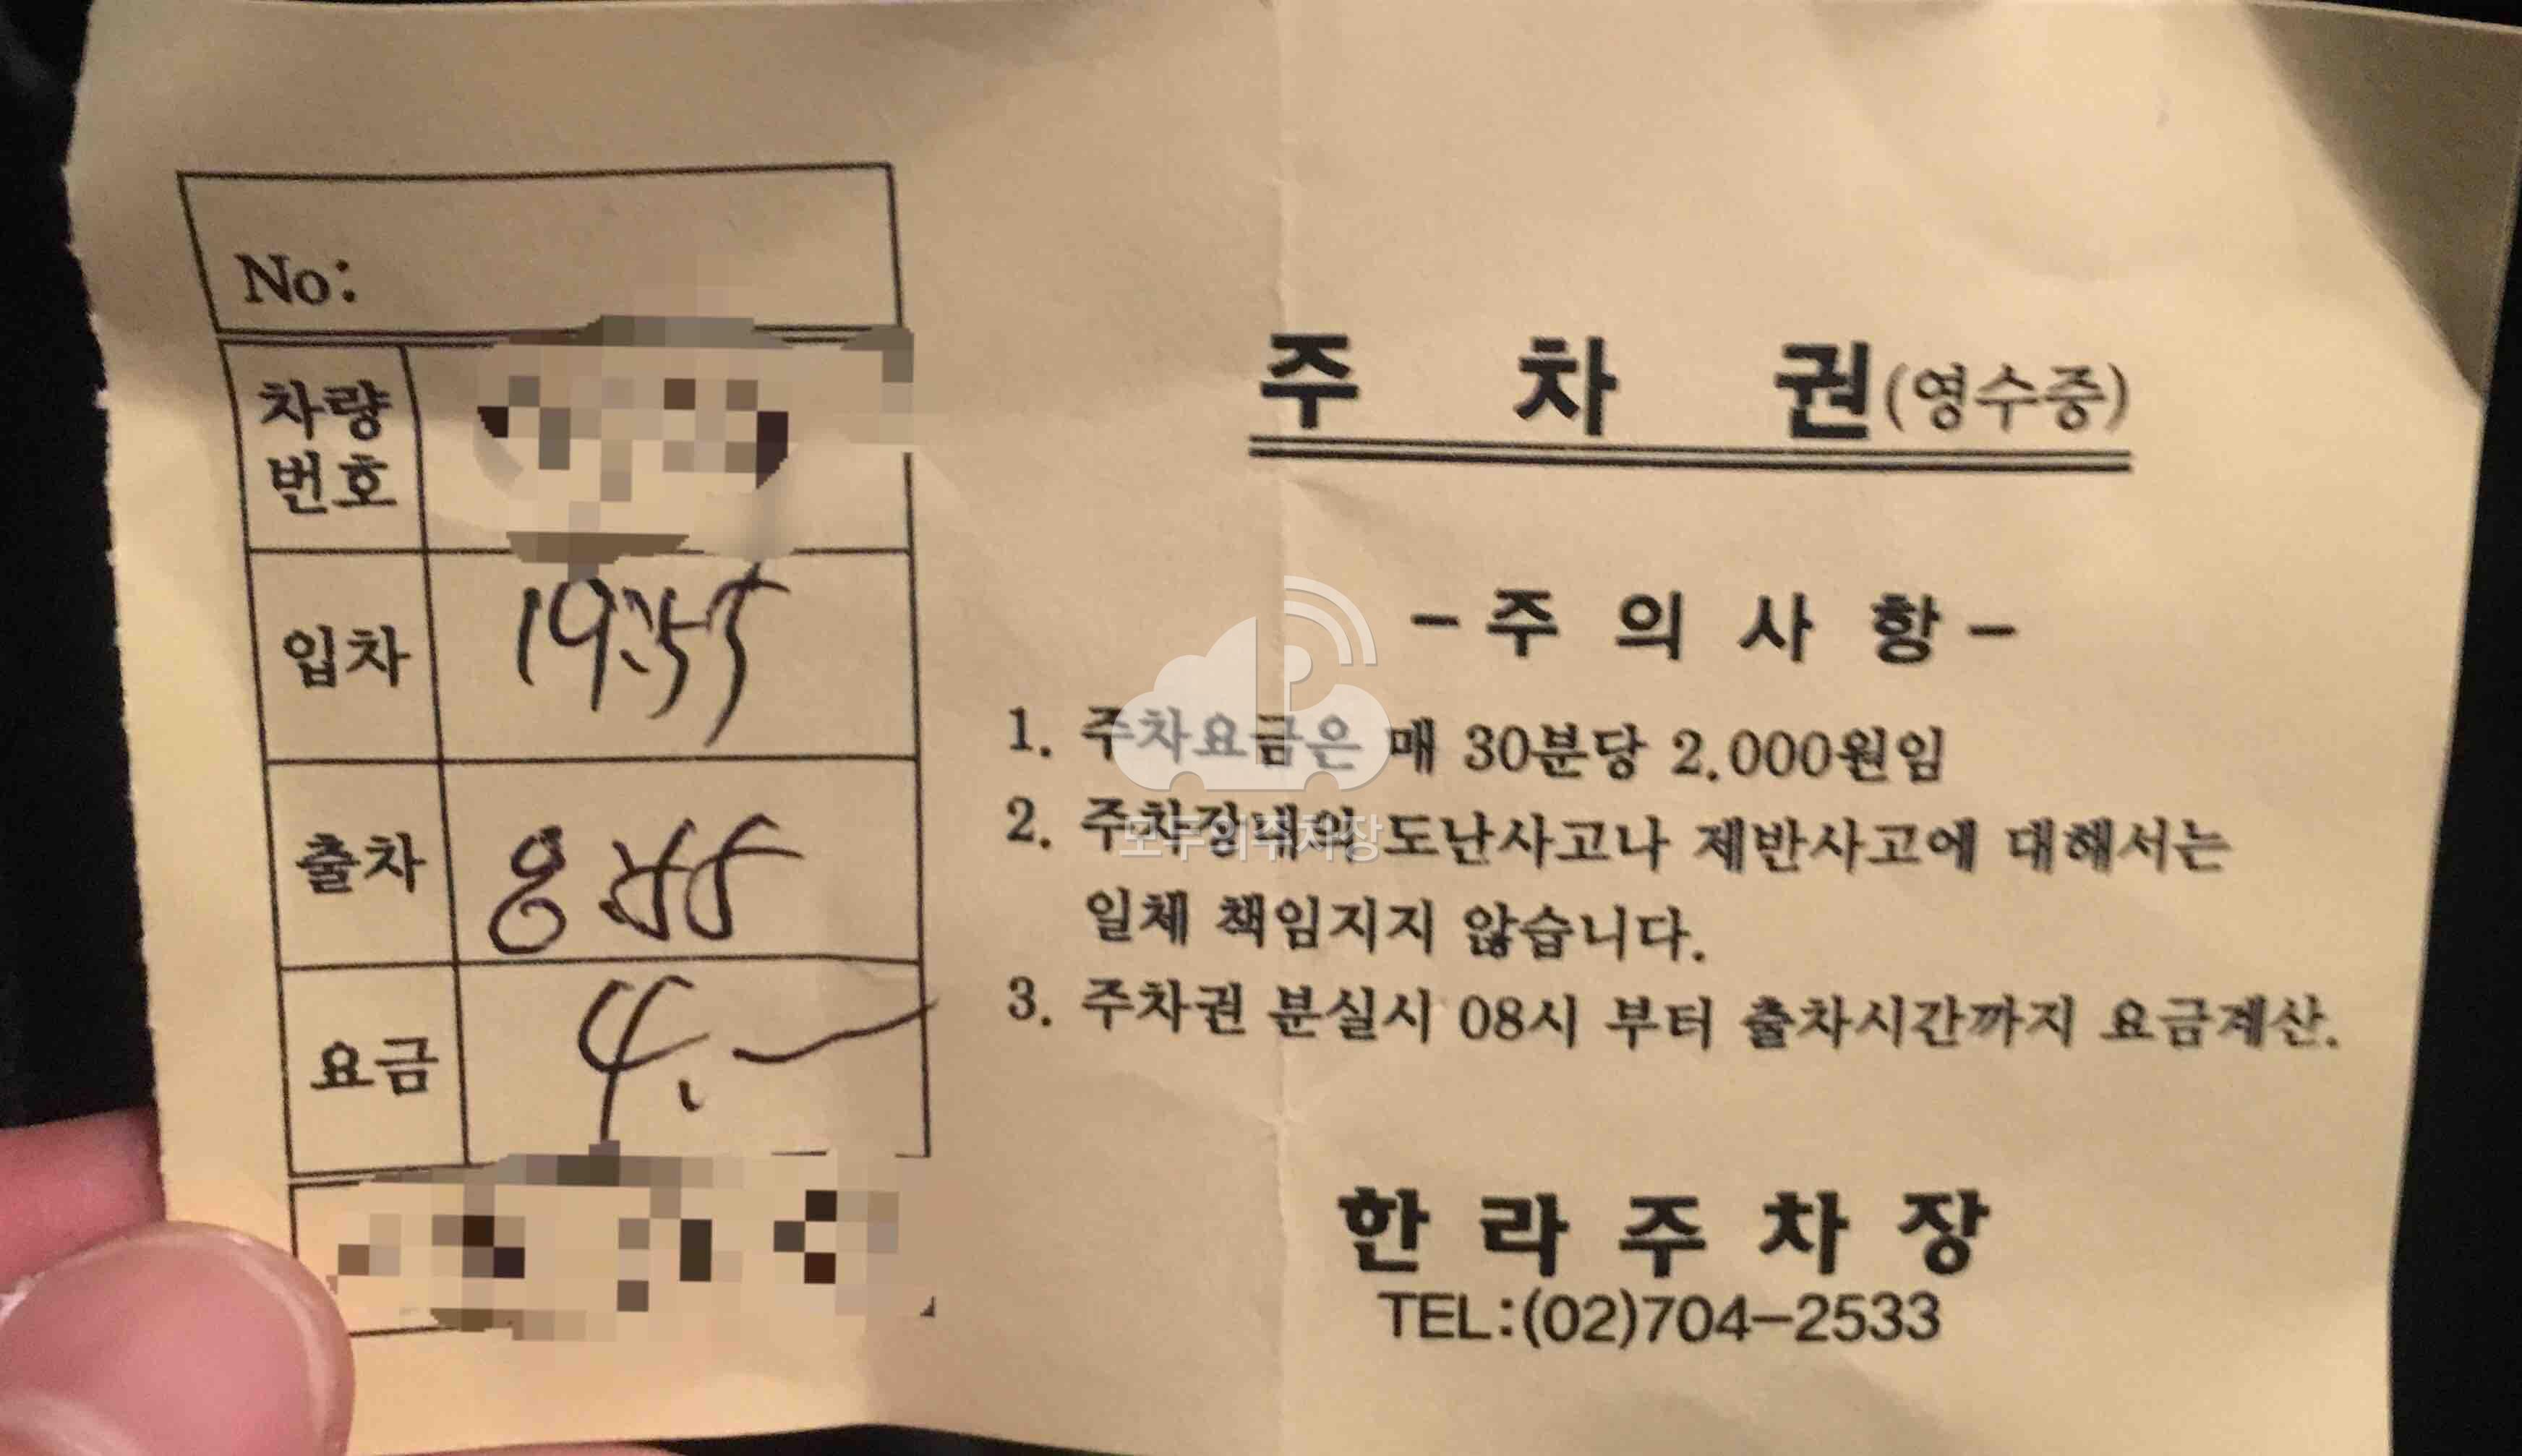 No:
차량
번호
입차 19:55
출차 8 55
요금 4.
주 차 권(영수증)
-주 의 사 항-
1. 주차요금은 매 30분당 2.000원임
2. 주차장내의 도난사고나 제반사고에 대해서는
일체 책임지지 않습니다.
3. 주차권 분실시 08시 부터 출차시간까지 요금계산.
모두의주차장
한라주차장
TEL:(02)704-2533